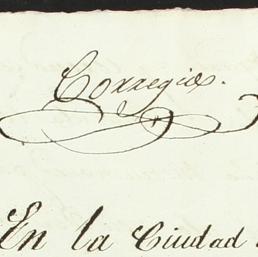 Corregidr.
En la Ciudad